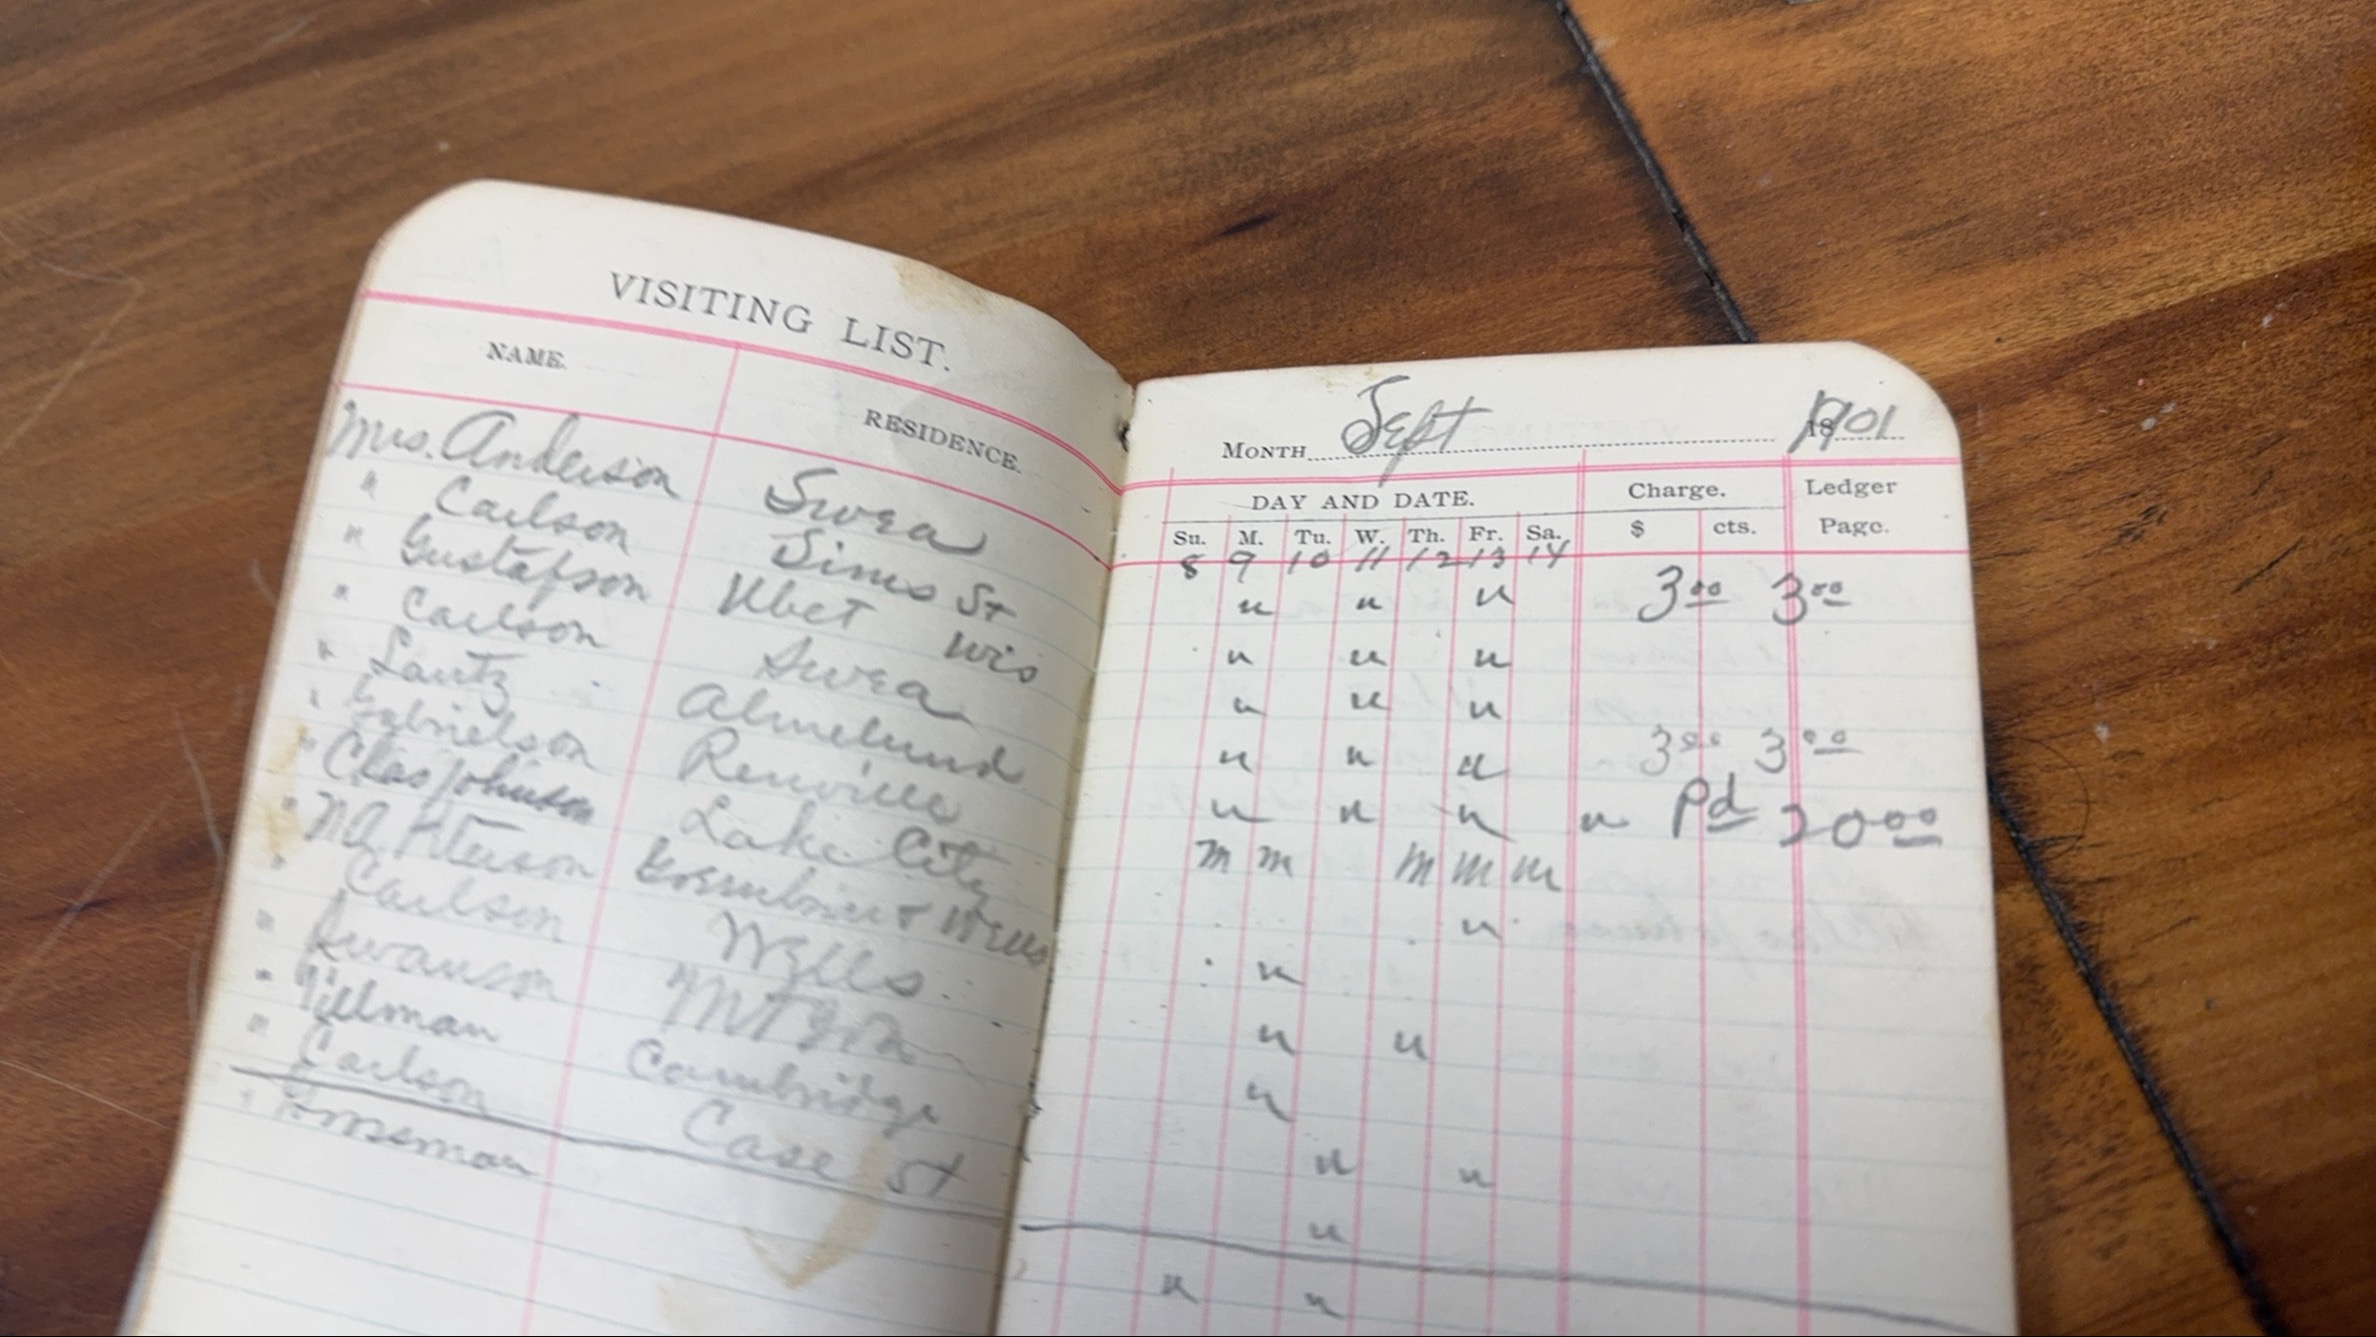 VISITING LIST.
NAME. RESIDENCE.
Mrs. Anderson Swea
" Carlson Sims St
" Gustafson Ubet Wis
" Carlson Swea
" Lantz Almelund
" Gabrielson Renville
" Chas Johnson Lake City
" Peterson & Wells
" Carlson Wells
" Swanson
" Tillman Cambridge
" Carlson Case St
"
MONTH Sept 1901
DAY AND DATE. Charge. Ledger
Su. M. Tu. W. Th. Fr. Sa. $ cts. Page.
8 9 10 11 12 13 14
u u u 3 00 3 00
u u u
u u u
u u u 3 00 3 00
u u u u Pd 20 00
m m m m m
u
u
u u
u
u u
u
u u